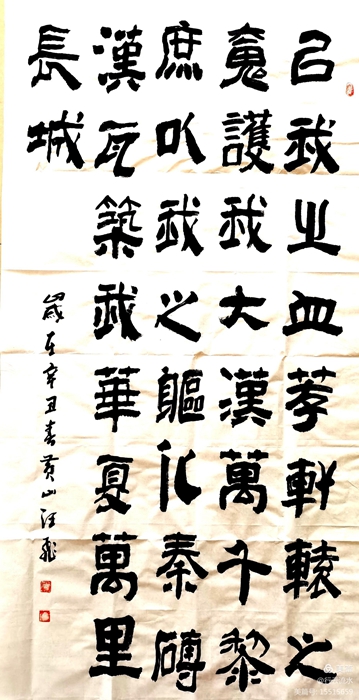 以我之血荐軒轅之
魂護我大漢萬千黎
庶以我之軀化秦磚
漢瓦築我華夏萬里
長城
歲在辛丑春黄山汪飛